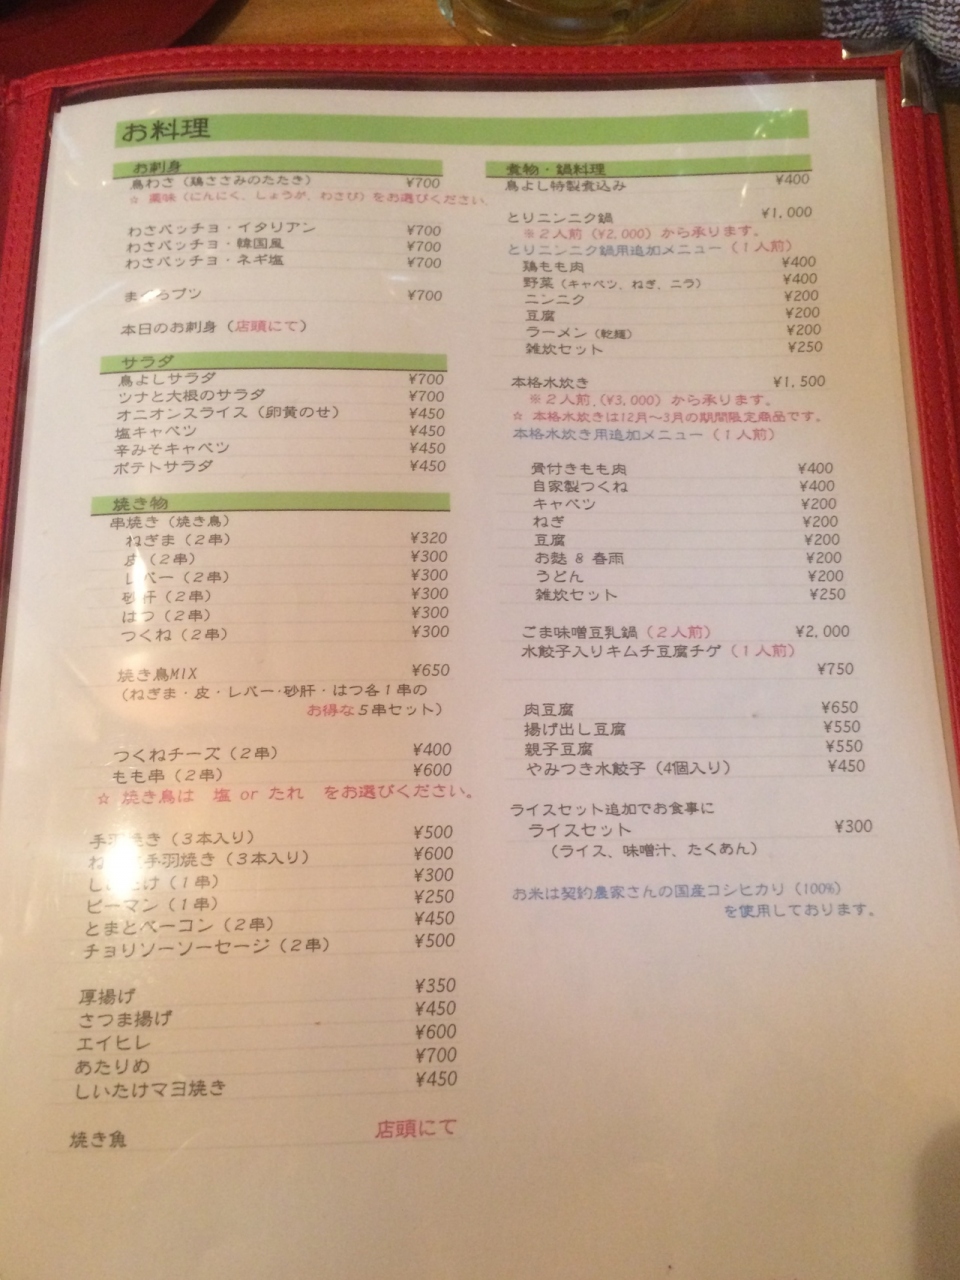 お料理
お刺身
鳥わさ（鶏ささみのたたき） ¥700
☆ 薬味（にんにく、しょうが、わさび）をお選びください。
わさパッチョ・イタリアン ¥700
わさパッチョ・韓国風 ¥700
わさパッチョ・ネギ塩 ¥700
まぐろブツ ¥700
本日のお刺身（店頭にて）
サラダ
鳥よしサラダ ¥700
ツナと大根のサラダ ¥700
オニオンスライス（卵黄のせ） ¥450
塩キャベツ ¥450
辛みそキャベツ ¥450
ポテトサラダ ¥450
焼き物
串焼き（焼き鳥）
ねぎま（２串） ¥320
皮（２串） ¥300
レバー（２串） ¥300
砂肝（２串） ¥300
はつ（２串） ¥300
つくね（２串） ¥300
焼き鳥MIX ¥650
（ねぎま・皮・レバー・砂肝・はつ各１串の
お得な５串セット）
つくねチーズ（２串） ¥400
もも串（２串） ¥600
☆ 焼き鳥は 塩 or たれ をお選びください。
手羽焼き（３本入り） ¥500
手羽焼き（３本入り） ¥600
しいたけ（１串） ¥300
ピーマン（１串） ¥250
とまとベーコン（２串） ¥450
チョリソーソーセージ（２串） ¥500
厚揚げ ¥350
さつま揚げ ¥450
エイヒレ ¥600
あたりめ ¥700
しいたけマヨ焼き ¥450
焼き魚 店頭にて
煮物・鍋料理
鳥よし特製煮込み ¥400
とりニンニク鍋 ¥1,000
※２人前（¥2,000）から承ります。
とりニンニク鍋用追加メニュー（１人前）
鶏もも肉 ¥400
野菜（キャベツ、ねぎ、ニラ） ¥400
ニンニク ¥200
豆腐 ¥200
ラーメン（乾麺） ¥200
雑炊セット ¥250
本格水炊き ¥1,500
※２人前（¥3,000）から承ります。
☆ 本格水炊きは12月～3月の期間限定商品です。
本格水炊き用追加メニュー（１人前）
骨付きもも肉 ¥400
自家製つくね ¥400
キャベツ ¥200
ねぎ ¥200
豆腐 ¥200
お麩 & 春雨 ¥200
うどん ¥200
雑炊セット ¥250
ごま味噌豆乳鍋（２人前） ¥2,000
水餃子入りキムチ豆腐チゲ（１人前）
¥750
肉豆腐 ¥650
揚げ出し豆腐 ¥550
親子豆腐 ¥550
やみつき水餃子（4個入り） ¥450
ライスセット追加でお食事に
ライスセット ¥300
（ライス、味噌汁、たくあん）
お米は契約農家さんの国産コシヒカリ（100%）
を使用しております。